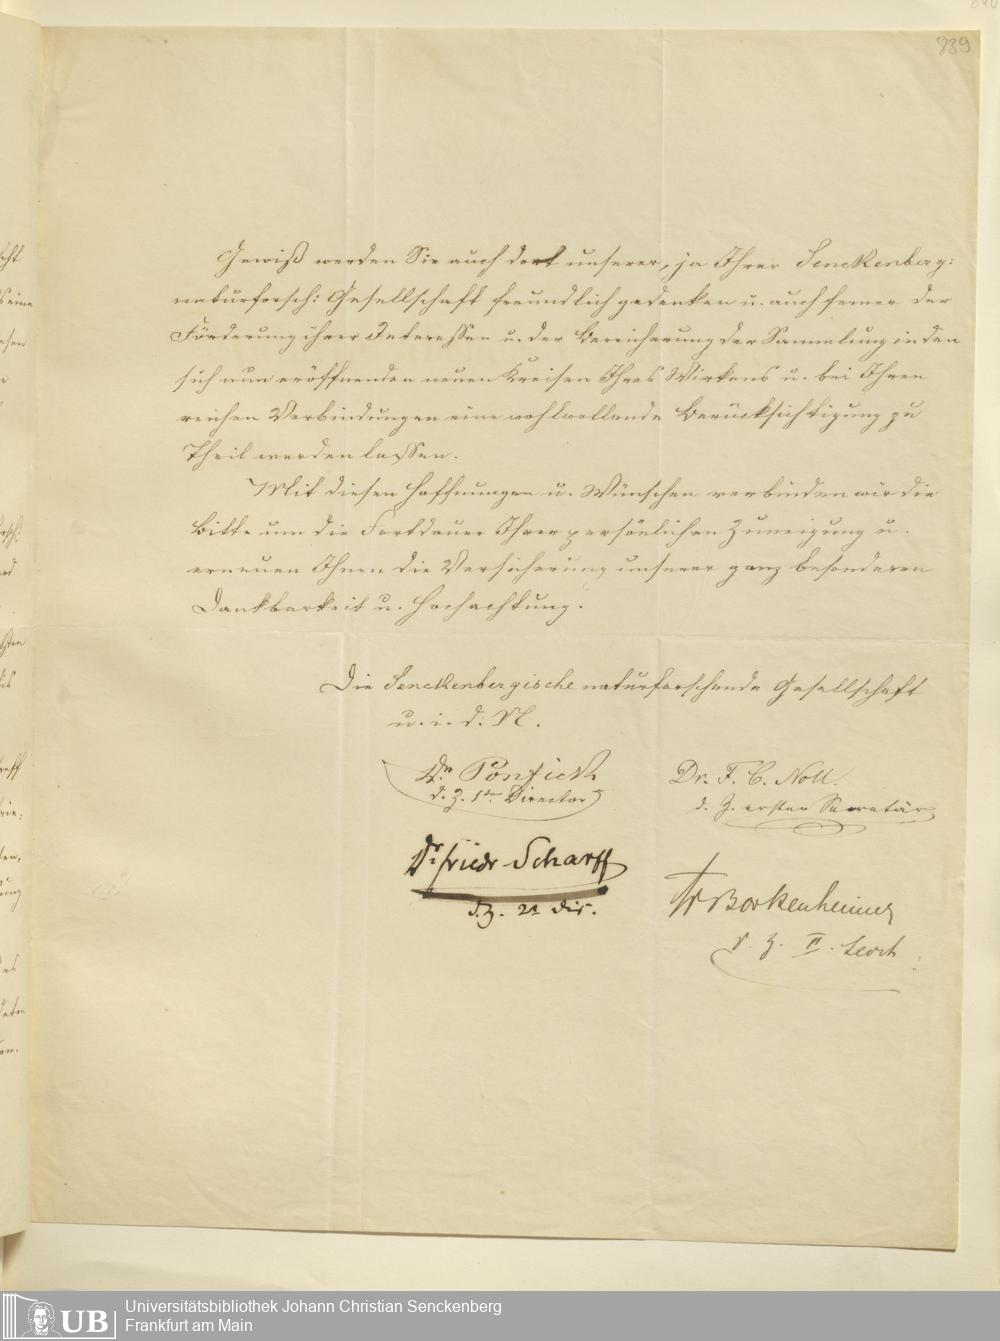 839
Gewiß werden Sie auch dort unserer, ja Ihrer Senckenberg:
naturforsch: Gesellschaft freundlich gedenken u. auch ferner der
Förderung ihrer Interessen u. der Bereicherung der Sammlung in den
sich nun eröffnenden neuen Kreisen Ihres Wirkens u. bei Ihren
reichen Verbindungen eine wohlwollende Berücksichtigung zu
Theil werden lassen.
Mit diesen Hoffnungen u. Wünschen verbinden wir die
Bitte um die Fortdauer Ihrer persönlichen Zuneigung u.
erneuen Ihnen die Versicherung unserer ganz besonderen
Dankbarkeit u. Hochachtung.
Die Senckenbergische naturforschende Gesellschaft
u. i. d. N.
Dr. Ponfick
d. Z. 1ter Director
Dr. F. C. Noll.
d. Z. erster Secretär
Dr. Friedr Scharff
d. Z. 2r Dir.
Dr Bockenheimer
d. Z. II. Secr
UB
Universitätsbibliothek Johann Christian Senckenberg
Frankfurt am Main